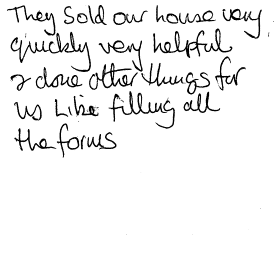 They sold our house very
quickly very helpful
& done other things for
us Like filling all
the forms